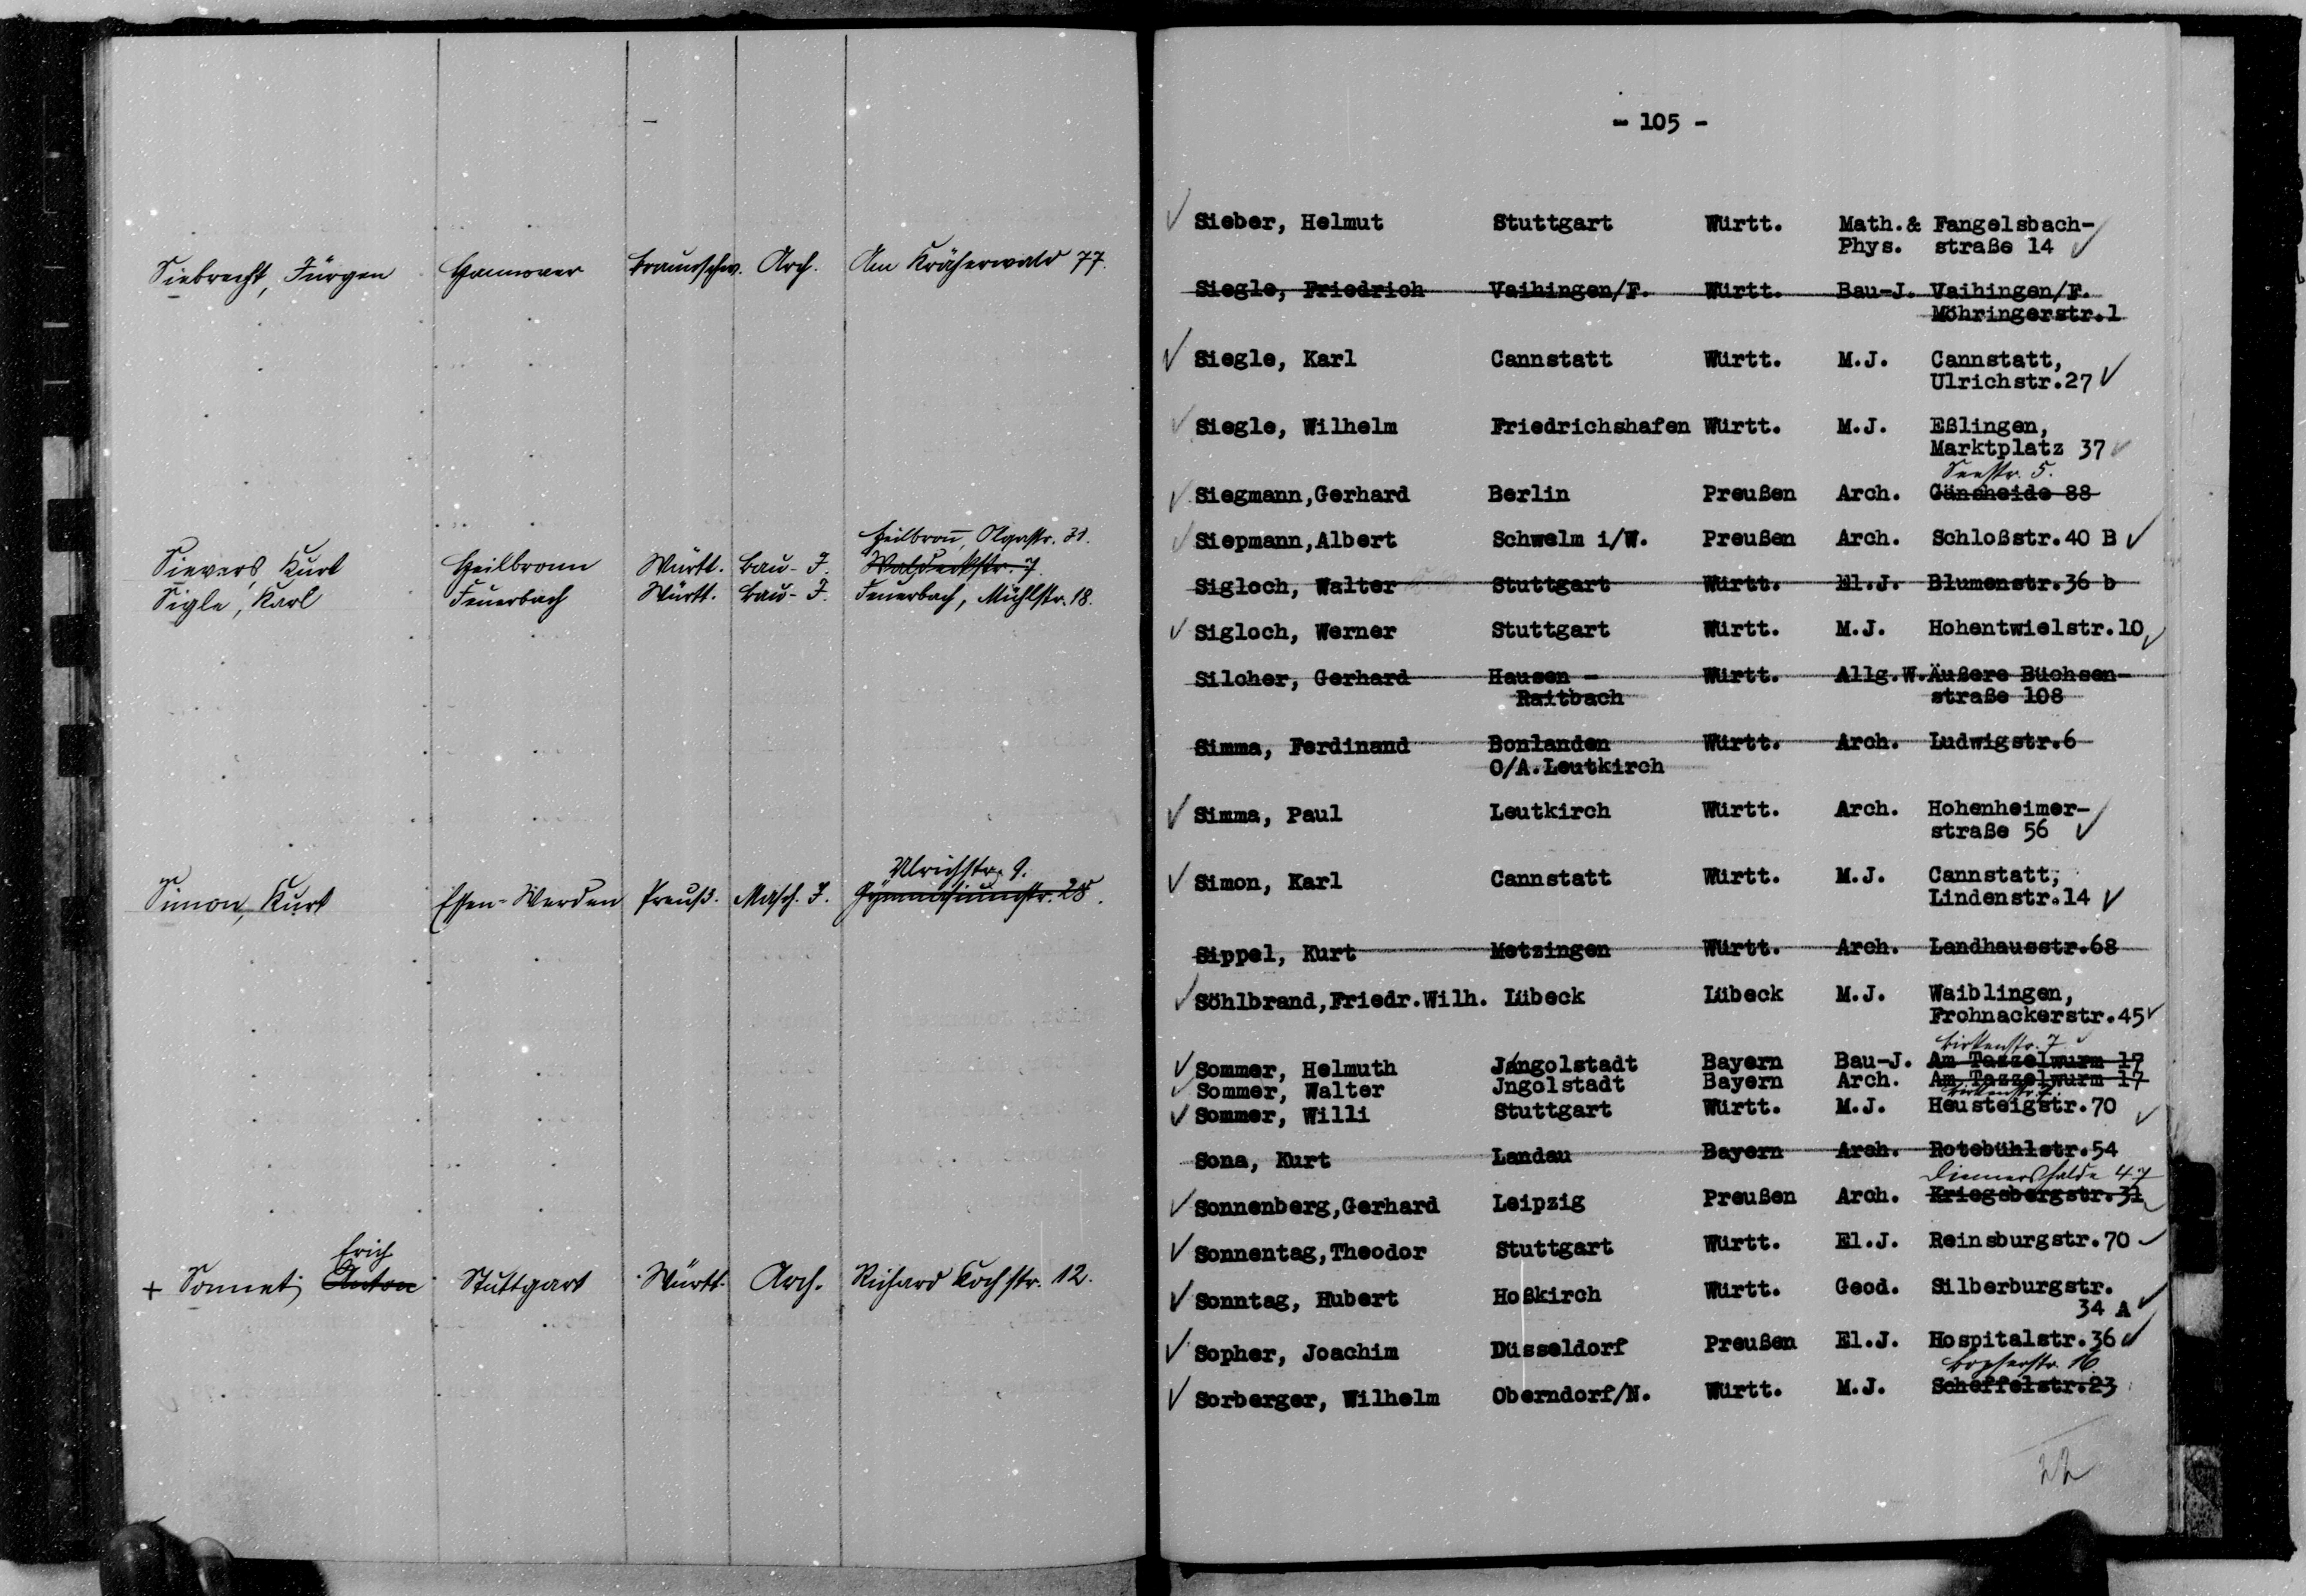 Siebrecht, Jürgen Hannover Braunschw. Arch. Am Kräherwald 77.
Heilbronn, Olgastr. 31.
Sievers, Kurt Heilbronn Württ. Bau-J. Waldeckstr. 7.
Sigle, Karl Feuerbach Württ. Bau-J. Feuerbach, Mühlstr. 18.
Ulrichstr. 9.
Simon, Kurt Essen-Werden Preuß. Masch. J. Gymnasiumstr. 28.
Erich
+ Sonnet, Anton Stuttgart Württ. Arch. Richard Kochstr. 12.
- 105 -
Sieber, Helmut Stuttgart Württ. Math.& Fangelsbach-
Phys. straße 14
Siegle, Friedrich Vaihingen/F. Württ. Bau-J. Vaihingen/F.
Möhringerstr.1
Siegle, Karl Cannstatt Württ. M.J. Cannstatt,
Ulrichstr.27
Siegle, Wilhelm Friedrichshafen Württ. M.J. Eßlingen,
Marktplatz 37
Seestr. 5.
Siegmann,Gerhard Berlin Preußen Arch. Gänsheide 88
Siepmann,Albert Schwelm i/W. Preußen Arch. Schloßstr.40 B
Sigloch, Walter Stuttgart Württ. El.J. Blumenstr.36 b
Sigloch, Werner Stuttgart Württ. M.J. Hohentwielstr.10
Silcher, Gerhard Hausen - Württ. Allg.W. Äußere Büchsen-
Raitbach straße 108
Simma, Ferdinand Bonlanden Württ. Arch. Ludwigstr.6
O/A.Leutkirch
Simma, Paul Leutkirch Württ. Arch. Hohenheimer-
straße 56
Simon, Karl Cannstatt Württ. M.J. Cannstatt,
Lindenstr.14
Sippel, Kurt Metzingen Württ. Arch. Landhausstr.68
Söhlbrand,Friedr.Wilh. Lübeck Lübeck M.J. Waiblingen,
Frohnackerstr.45
Birkenstr. 7
Sommer, Helmuth Jngolstadt Bayern Bau-J. Am Tazzelwurm 17
Sommer, Walter Jngolstadt Bayern Arch. Am Tazzelwurm 17
Birkenstr. 7.
Sommer, Willi Stuttgart Württ. M.J. Heusteigstr.70
Sona, Kurt Landau Bayern Arch. Rotebühlstr.54
Diemershalde 47
Sonnenberg,Gerhard Leipzig Preußen Arch. Kriegsbergstr.31
Sonnentag,Theodor Stuttgart Württ. El.J. Reinsburgstr.70
Sonntag, Hubert Hoßkirch Württ. Geod. Silberburgstr.
34 A
Sopher, Joachim Düsseldorf Preußen El.J. Hospitalstr.36
Bopserstr. 16
Sorberger, Wilhelm Oberndorf/N. Württ. M.J. Scheffelstr.23
22